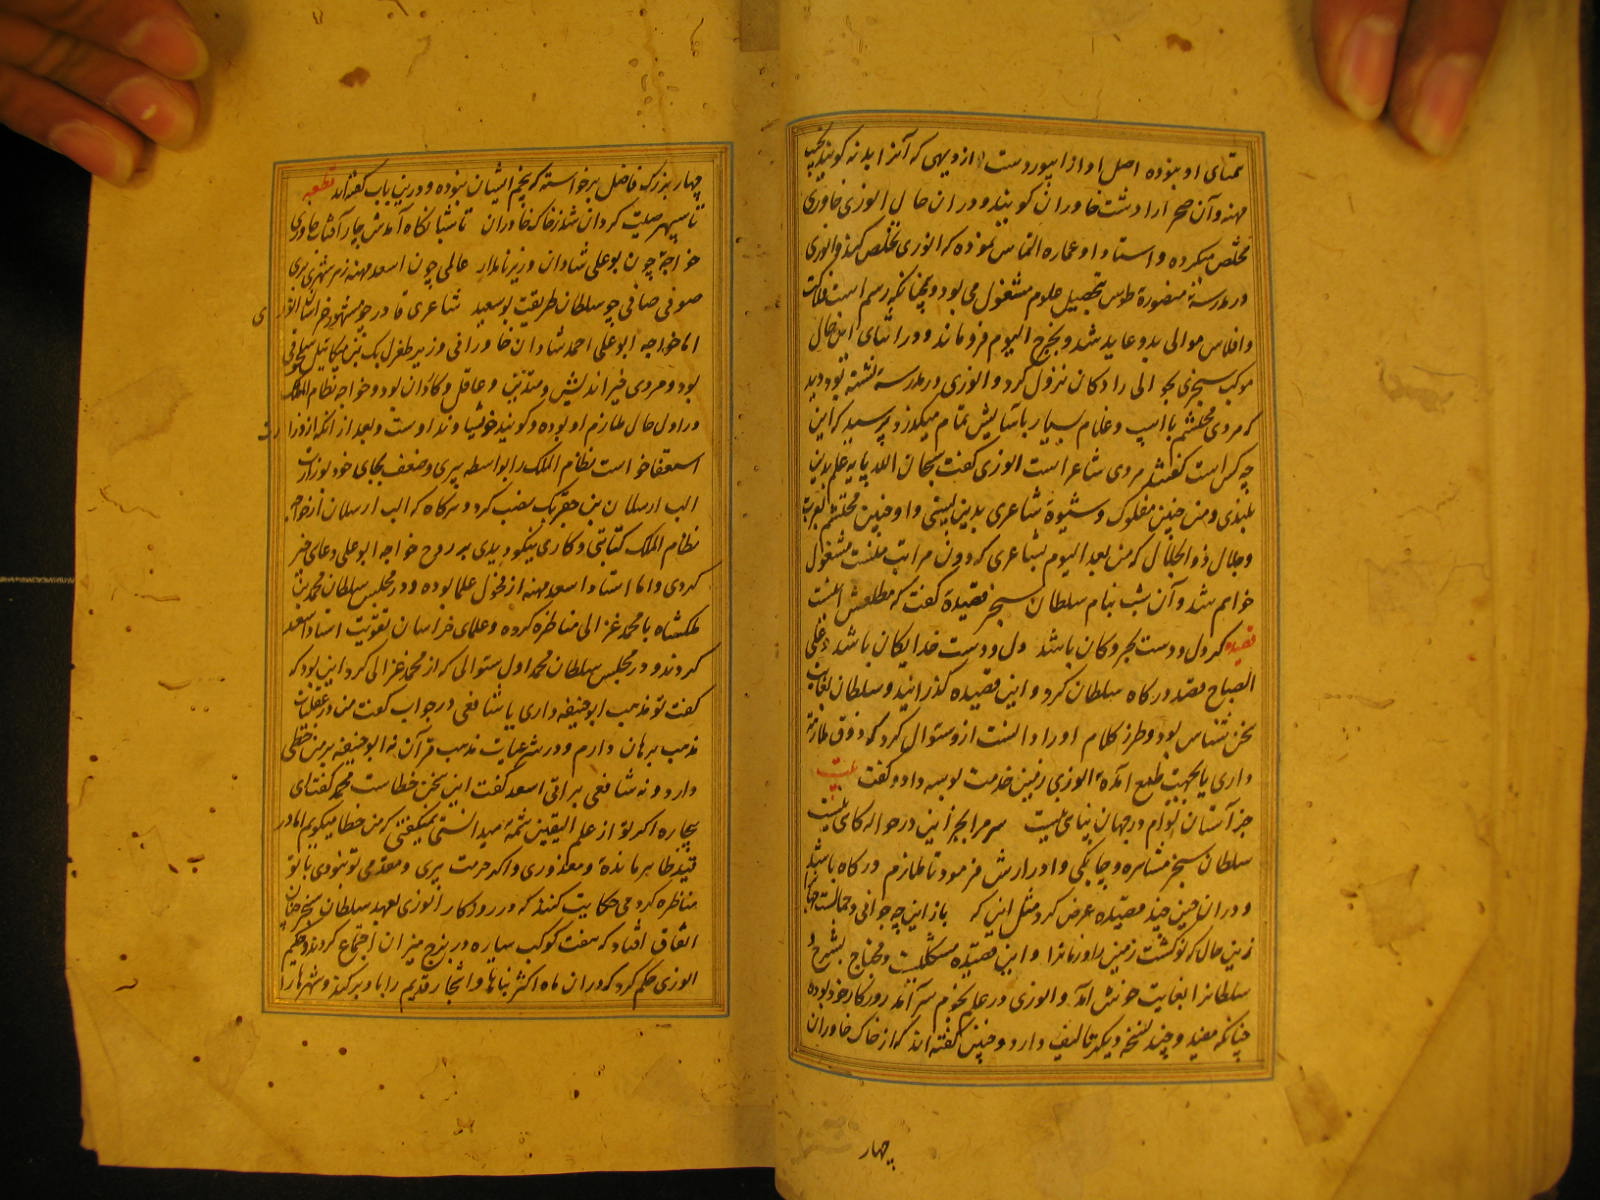 همتای او نبوده اصل او از ابیوردست از دیهی که آنرا بدنه کویند بجنب
مهنه و آن صحرا را دشت خاوران کویند و در ان حال انوری خاوری
تخلص میکرده و استاد او عماره التماس نموده که انوری تخلص کند و انوری
در مدرسه منصوره طوس بتحصیل علوم مشغول می بود و چنانکه رسم است فلاکت
و افلاس موالی بدو عاید شد و بخرج الیوم فرو ماند و در اثنای این حال
موکب سنجری بحوالی رادکان نزول کرد و انوری در مدرسه نشسته بود دید
که مردی محتشم با اسپ و غلام بسیار با تمام میکذرد پرسید که این
چه کس است کفتند مردی شاعر است انوری کفت سبحان الله پایه علم بدین
بلندی و من چنین مفلوک و شیوه شاعری بدین پستی و او چنین محتشم بعزت
و جلال ذو الجلال که من بعد الیوم بشاعری که دون مراتب منست مشغول
خواهم شد و آن شب بنام سلطان سنجر قصیده کفت که مطلعش اینست
قصیده کر دل و دست بحر و کان باشد دل و دست خدایکان باشد و علی
الصباح قصد درکاه سلطان کرد و این قصیده کذرانید و سلطان بغایت
سخن شناس بود و طرز کلام او را دانست ازو سئوال کرد که ذوق ملازمت
داری یا بجهت طمع آمده انوری زمین خدمت بوسه داد و کفت بیت
جز آستان توام در جهان پناهی نیست سر مرا بجز این در حواله کاهی نیست
سلطان سنجر مشاهره و جامکی و ادرارش فرمود تا ملازم درکاه باشد
و در ان حین چند قصیده عرض کرد مثل این که باز این چه جوانی و جمالست جهانرا
زین حال که نو کشت زمین را و زمانرا و این قصیده مشکلست و محتاج بشرح و
سلطانرا بغایت خوش آمد و انوری در علم نجوم سر آمد روزکار خود بوده
چنانکه مفید و چند نسخه دیکر تالیف دارد و چنین کفته اند که از خاک خاوران
چهار
چهار بزرک فاضل برخاسته که پنجم ایشان نبوده و درین باب کفته اند قطعه
تا سپهر صیت کردان شد ز خاک خاوران تا شبانکاه آمدش چار آفتاب خاوری
خواجه چون بوعلی شادان وزیر نامدار عالمی چون اسعد مهنه ز هر شری بری
صوفی صافی چو سلطان طریقت بوسعید شاعری قادر چو مشهور خراسان انوری
اما خواجه ابو علی احمد شادان خاورانی وزیر طغرل بک بن میکائیل سلجوقی
بود و مردی خیر اندیش و متدین و عاقل و کاردان بود و خواجه نظام الملک
در اول حال ملازم او بوده و کویند خویشاوند اوست و بعد از آنکه از وزارت
استعفا خواست نظام الملک را بواسطه پیری و ضعف بجای خود بوزارت
الب ارسلان بن جغربک نصب کرد و هرکاه که الب ارسلان از خواجه
نظام الملک کفایتی و کاری نیکو دیدی بر روح خواجه ابو علی دعای خیر
کردی و اما استاد اسعد مهنه از فحول علما بوده و در مجلس سلطان محمد بن
ملکشاه با محمد غزالی مناظره کرده و علمای خراسان تقویت استاد اسعد
کردند و در مجلس سلطان محمد اول سئوالی که از محمد غزالی کرد این بود که
کفت تو مذهب ابو حنیفه داری یا شافعی در جواب کفت من در عقلیات
مذهب برهان دارم و در شرعیات مذهب قرآن نه ابو حنیفه بر من خطی
دارد و نه شافعی براتی اسعد کفت این سخن خطاست محمد کفتا ای
بیچاره اکر تو از علم الیقین شمه میدانستی نمیکفتی که من خطا میکویم اما در
قید ظاهر مانده و معذوری و اکر حرمت پیری و مقدمی تو نبودی با تو
مناظره کردمی حکایت کنند که در روزکار انوری بعهد سلطان سنجر چنان
اتفاق افتاد که هفت کوکب سیاره در برج میزان اجتماع کردند و حکیم
انوری حکم کرد که در ان ماه اکثر بناها و اشجار قدیم را باد برکند و شهرها را